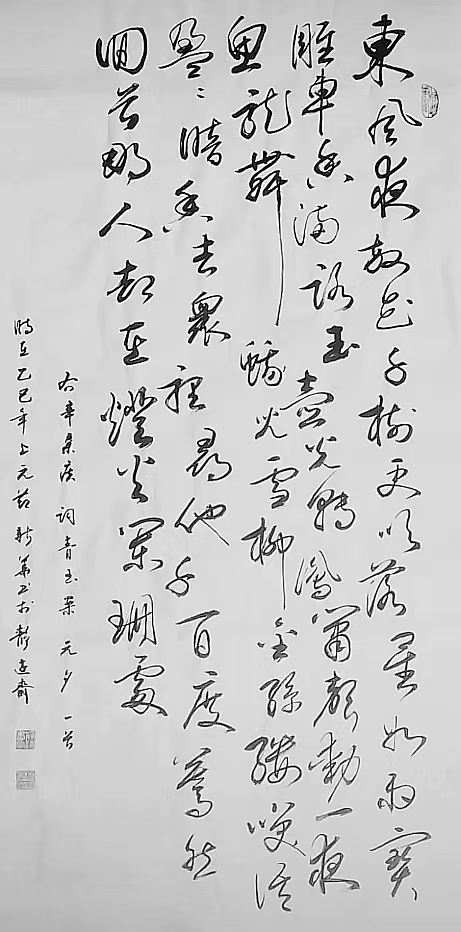 東風夜放花千樹更吹落星如雨寶
雕車香滿路玉壺光轉鳳簫聲動一夜
魚龍舞蛾兒雪柳金絲縷笑語
盈〻暗香去眾裡尋他千百度驀然
回首那人却在燈火闌珊處
右辛棄疾詞青玉案元夕一首
時在乙巳年上元節新華書於靜遠齋